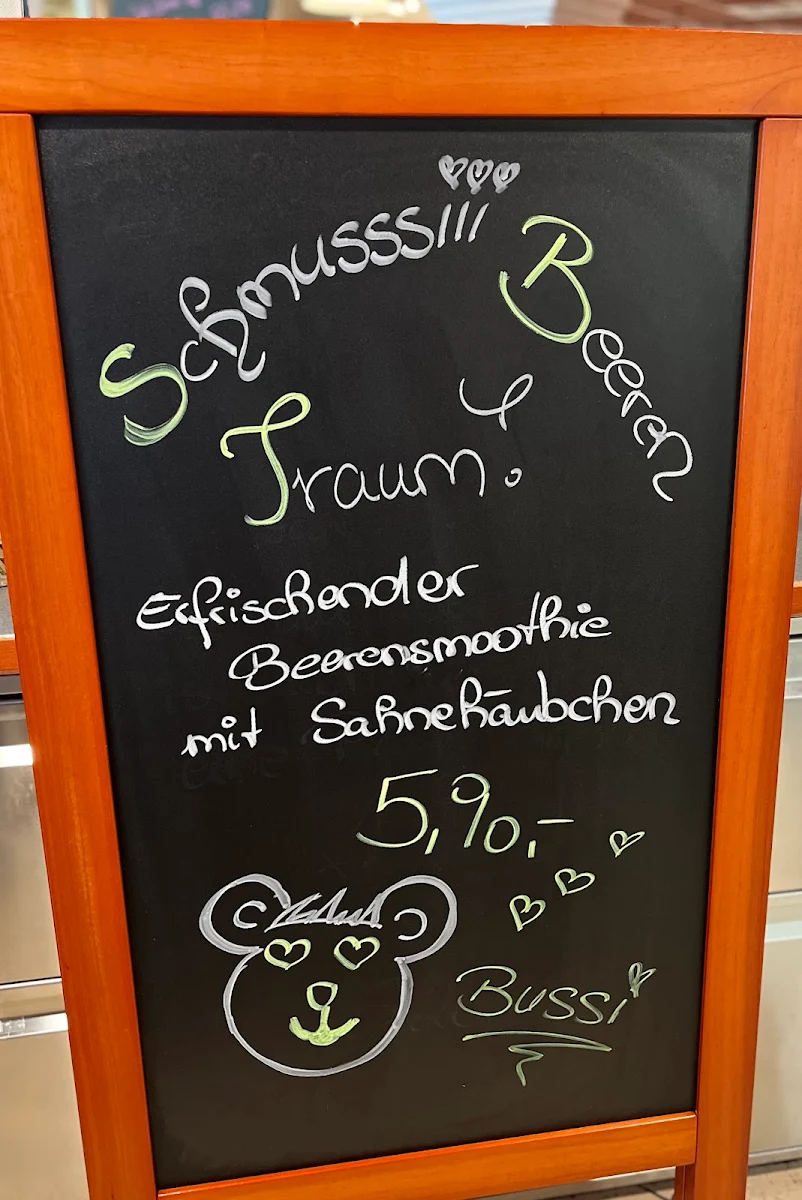 Schmusssiii Beeren
Traum!
Erfrischender
Beerensmoothie
mit Sahnehäubchen
5,90,-
Bussi